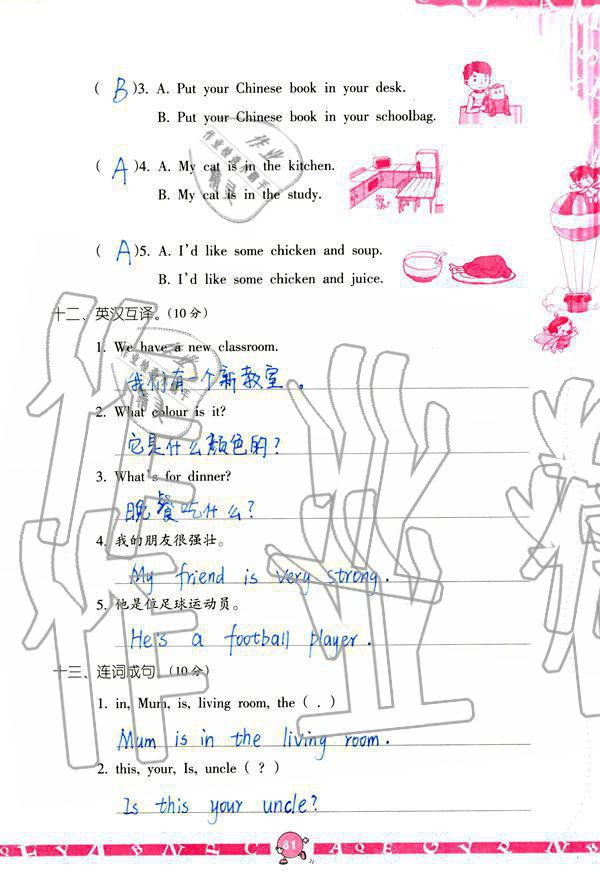 ( B )3. A. Put your Chinese book in your desk.
B. Put your Chinese book in your schoolbag.
( A )4. A. My cat is in the kitchen.
B. My cat is in the study.
( A )5. A. I'd like some chicken and soup.
B. I'd like some chicken and juice.
十二、英汉互译。(10 分)
1. We have a new classroom.
我们有一个新教室。
2. What colour is it?
它是什么颜色的?
3. What's for dinner?
晚餐吃什么?
4. 我的朋友很强壮。
My friend is very strong.
5. 他是位足球运动员。
He's a football player.
十三、连词成句。(10 分)
1. in, Mum, is, living room, the ( . )
Mum is in the living room.
2. this, your, Is, uncle ( ? )
Is this your uncle?
81